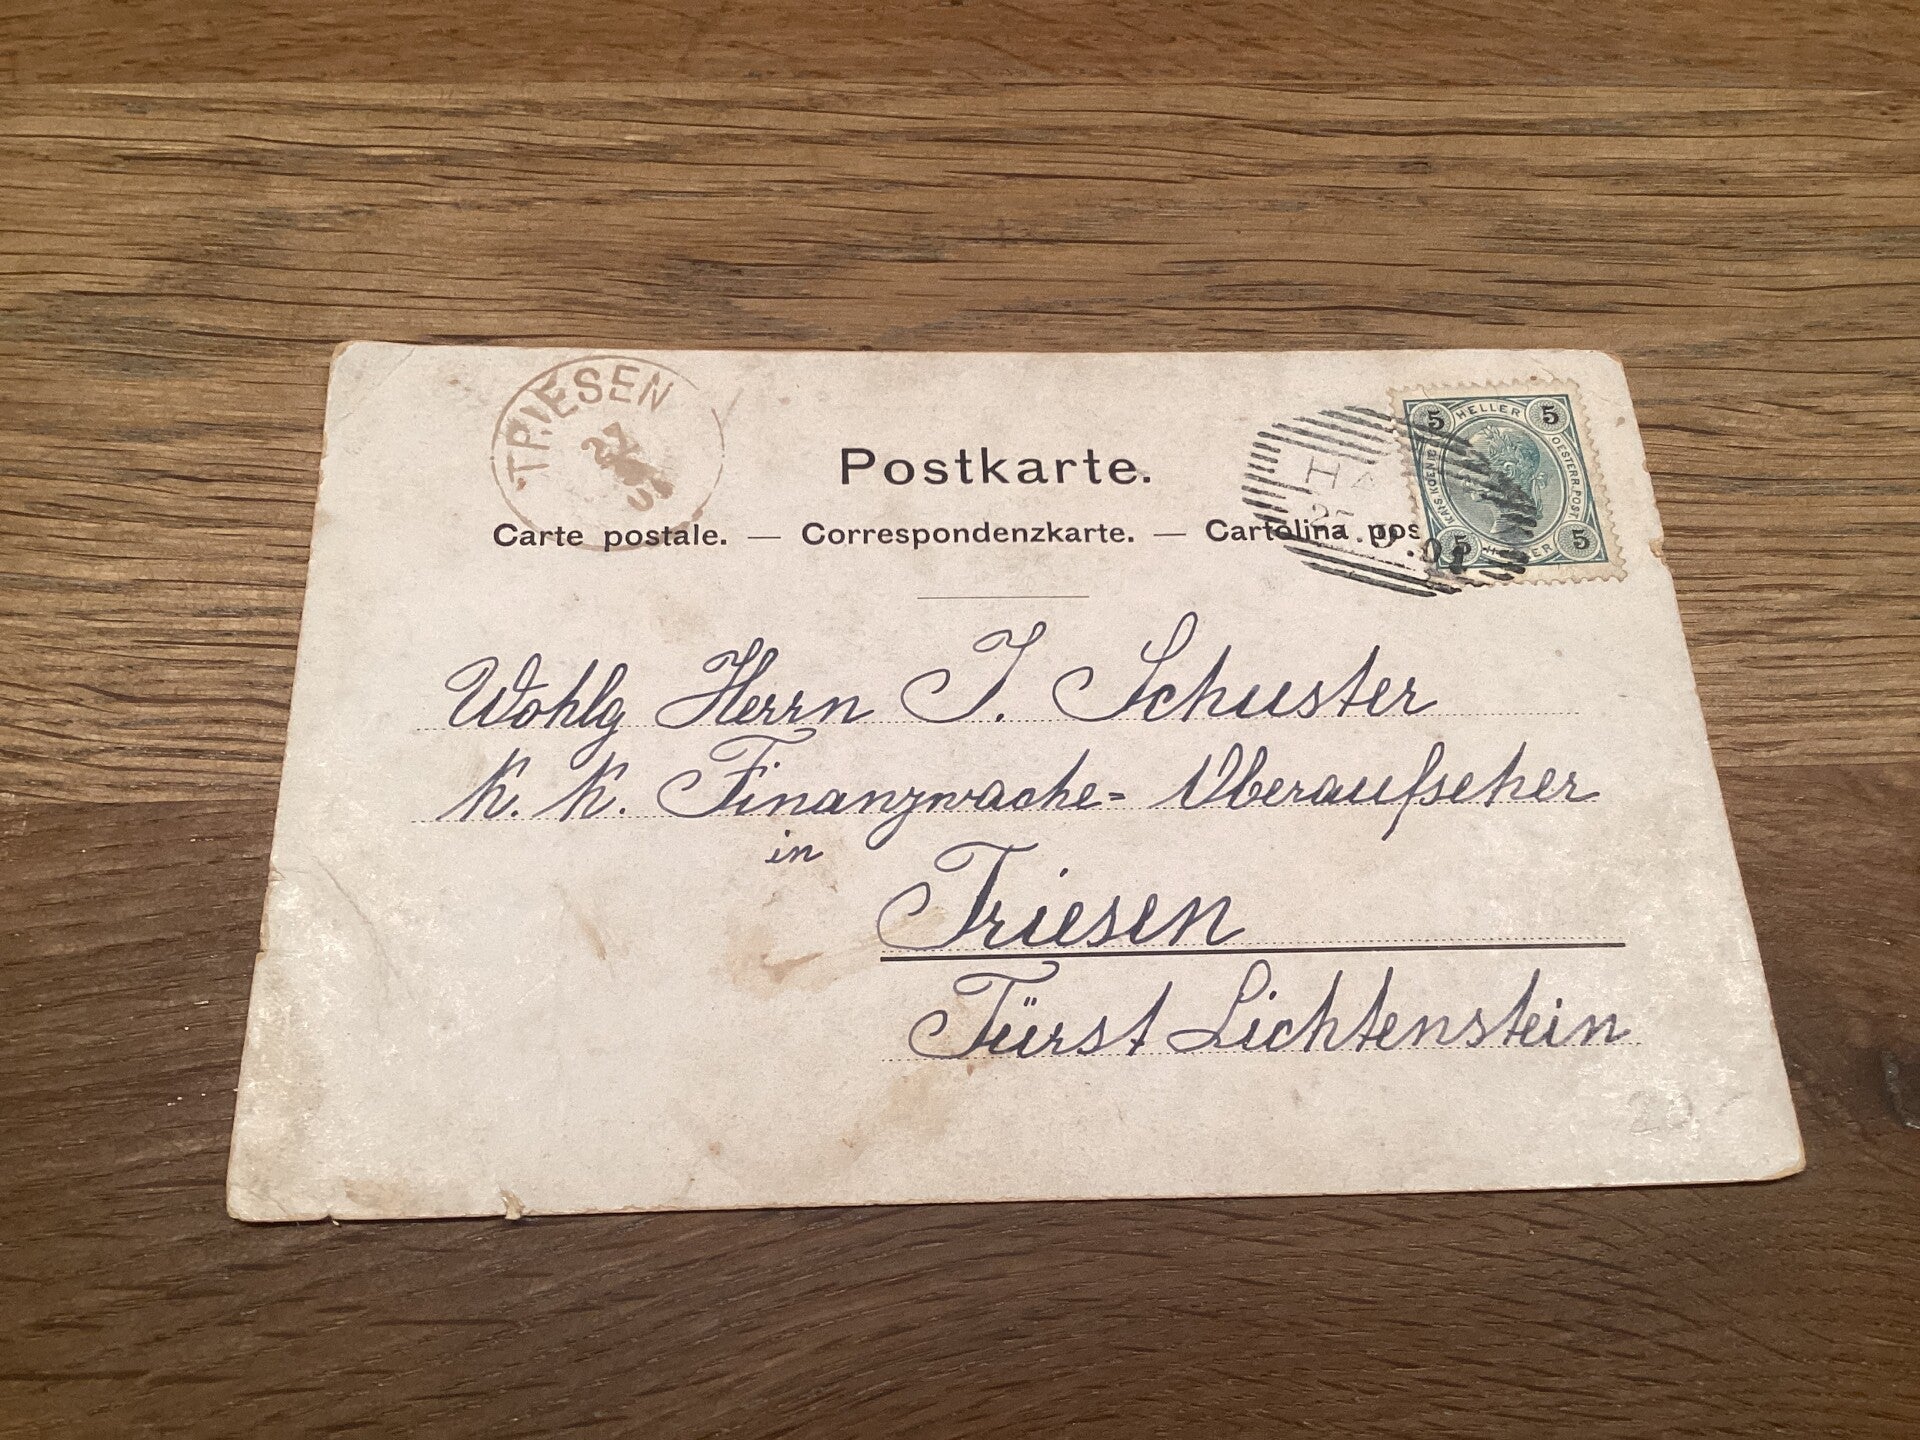 TRIESEN
27
Postkarte.
Carte postale. — Correspondenzkarte. — Cartolina pos
5 HELLER 5
KAIS. KOENIGL. OESTERR. POST
5 HELLER 5
Wohlg Herrn J. Schuster
K. K. Finanzwache- Oberaufseher
in
Triesen
Fürst Lichtenstein
20